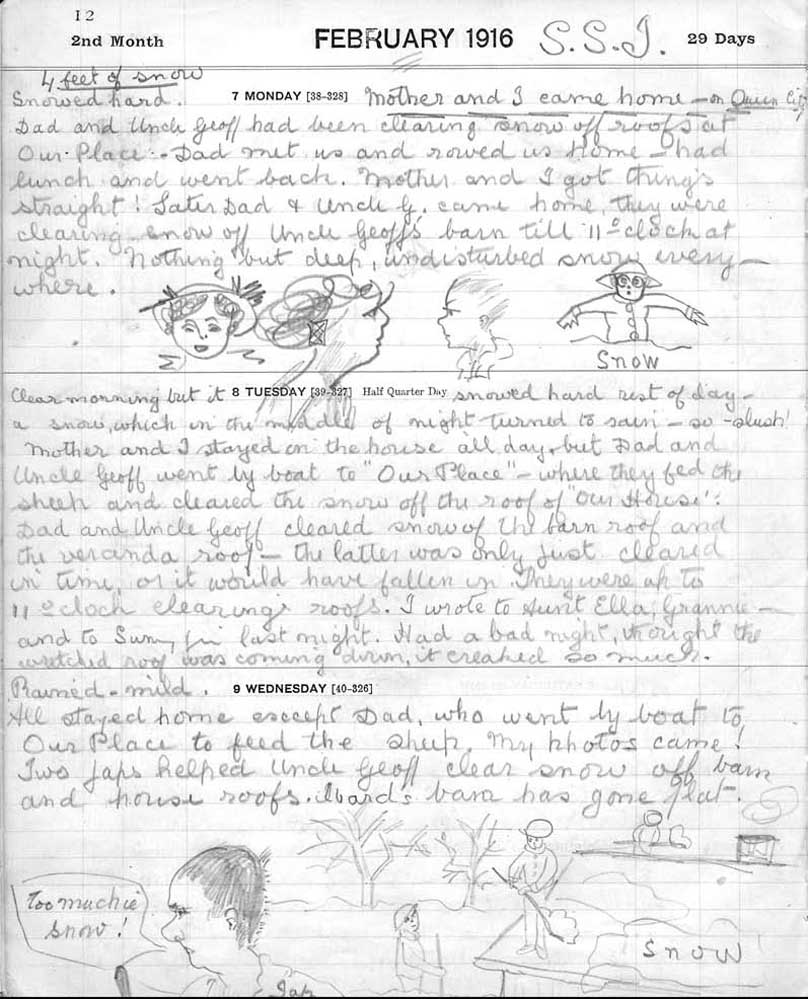 12
2nd Month FEBRUARY 1916 S.S.I. 29 Days
4 feet of snow
Snowed hard. 7 MONDAY [38-328] Mother and I came home - on Queen City
Dad and Uncle Geoff had been clearing snow off roofs at
Our Place - Dad met us and rowed us home - had
lunch and went back. Mother and I got things
straight! Later Dad & Uncle G. came home, they were
clearing snow off Uncle Geoff's barn till 11 o'clock at
night. Nothing but deep, undisturbed snow every-
where.
Snow
Clear morning but it 8 TUESDAY [39-327] Half Quarter Day snowed hard rest of day -
a snow, which in the middle of night turned to rain - so - slush!
Mother and I stayed in the house all day, but Dad and
Uncle Geoff went by boat to "Our Place" - where they fed the
sheep and cleared the snow off the roof of "Our House".
Dad and Uncle Geoff cleared snow of the barn roof and
the veranda roof - the latter was only just cleared
in time, or it would have fallen in. They were up to
11 o'clock clearing roofs. I wrote to Aunt Ella, Grannie -
and to last night. Had a bad night, thought the
wretched roof was coming down, it creaked so much.
Rained - mild. 9 WEDNESDAY [40-326]
All stayed home except Dad, who went by boat to
Our Place to feed the sheep. My photos came!
Two Japs helped Uncle Geoff clear snow off barn
and house roofs. barn has gone flat.
Too muchie
snow!
Snow
Jap